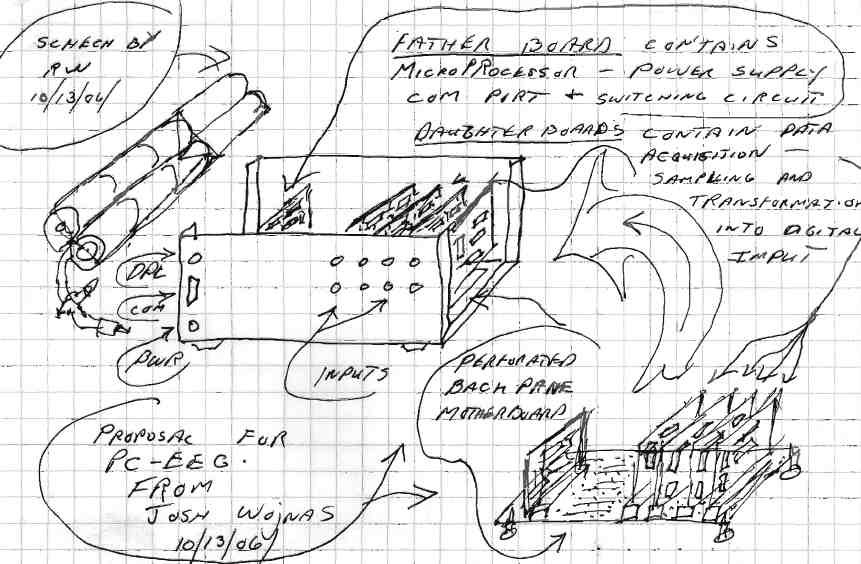 SCHECH BY
RW
10/13/06
FATHER BOARD CONTAINS
MICROPROCESSOR - POWER SUPPLY
COM PORT + SWITCHING CIRCUIT
DAUGHTER BOARDS CONTAIN DATA
ACQUISITION -
SAMPLING AND
TRANSFORMATION
INTO DIGITAL
IMPUT
DPL
COM
PWR
INPUTS
PERFORATED
BACH PANE
MOTHERBOARD
PROPOSAL FOR
PC-EEG.
FROM
JOSH WOJNAS
10/13/06